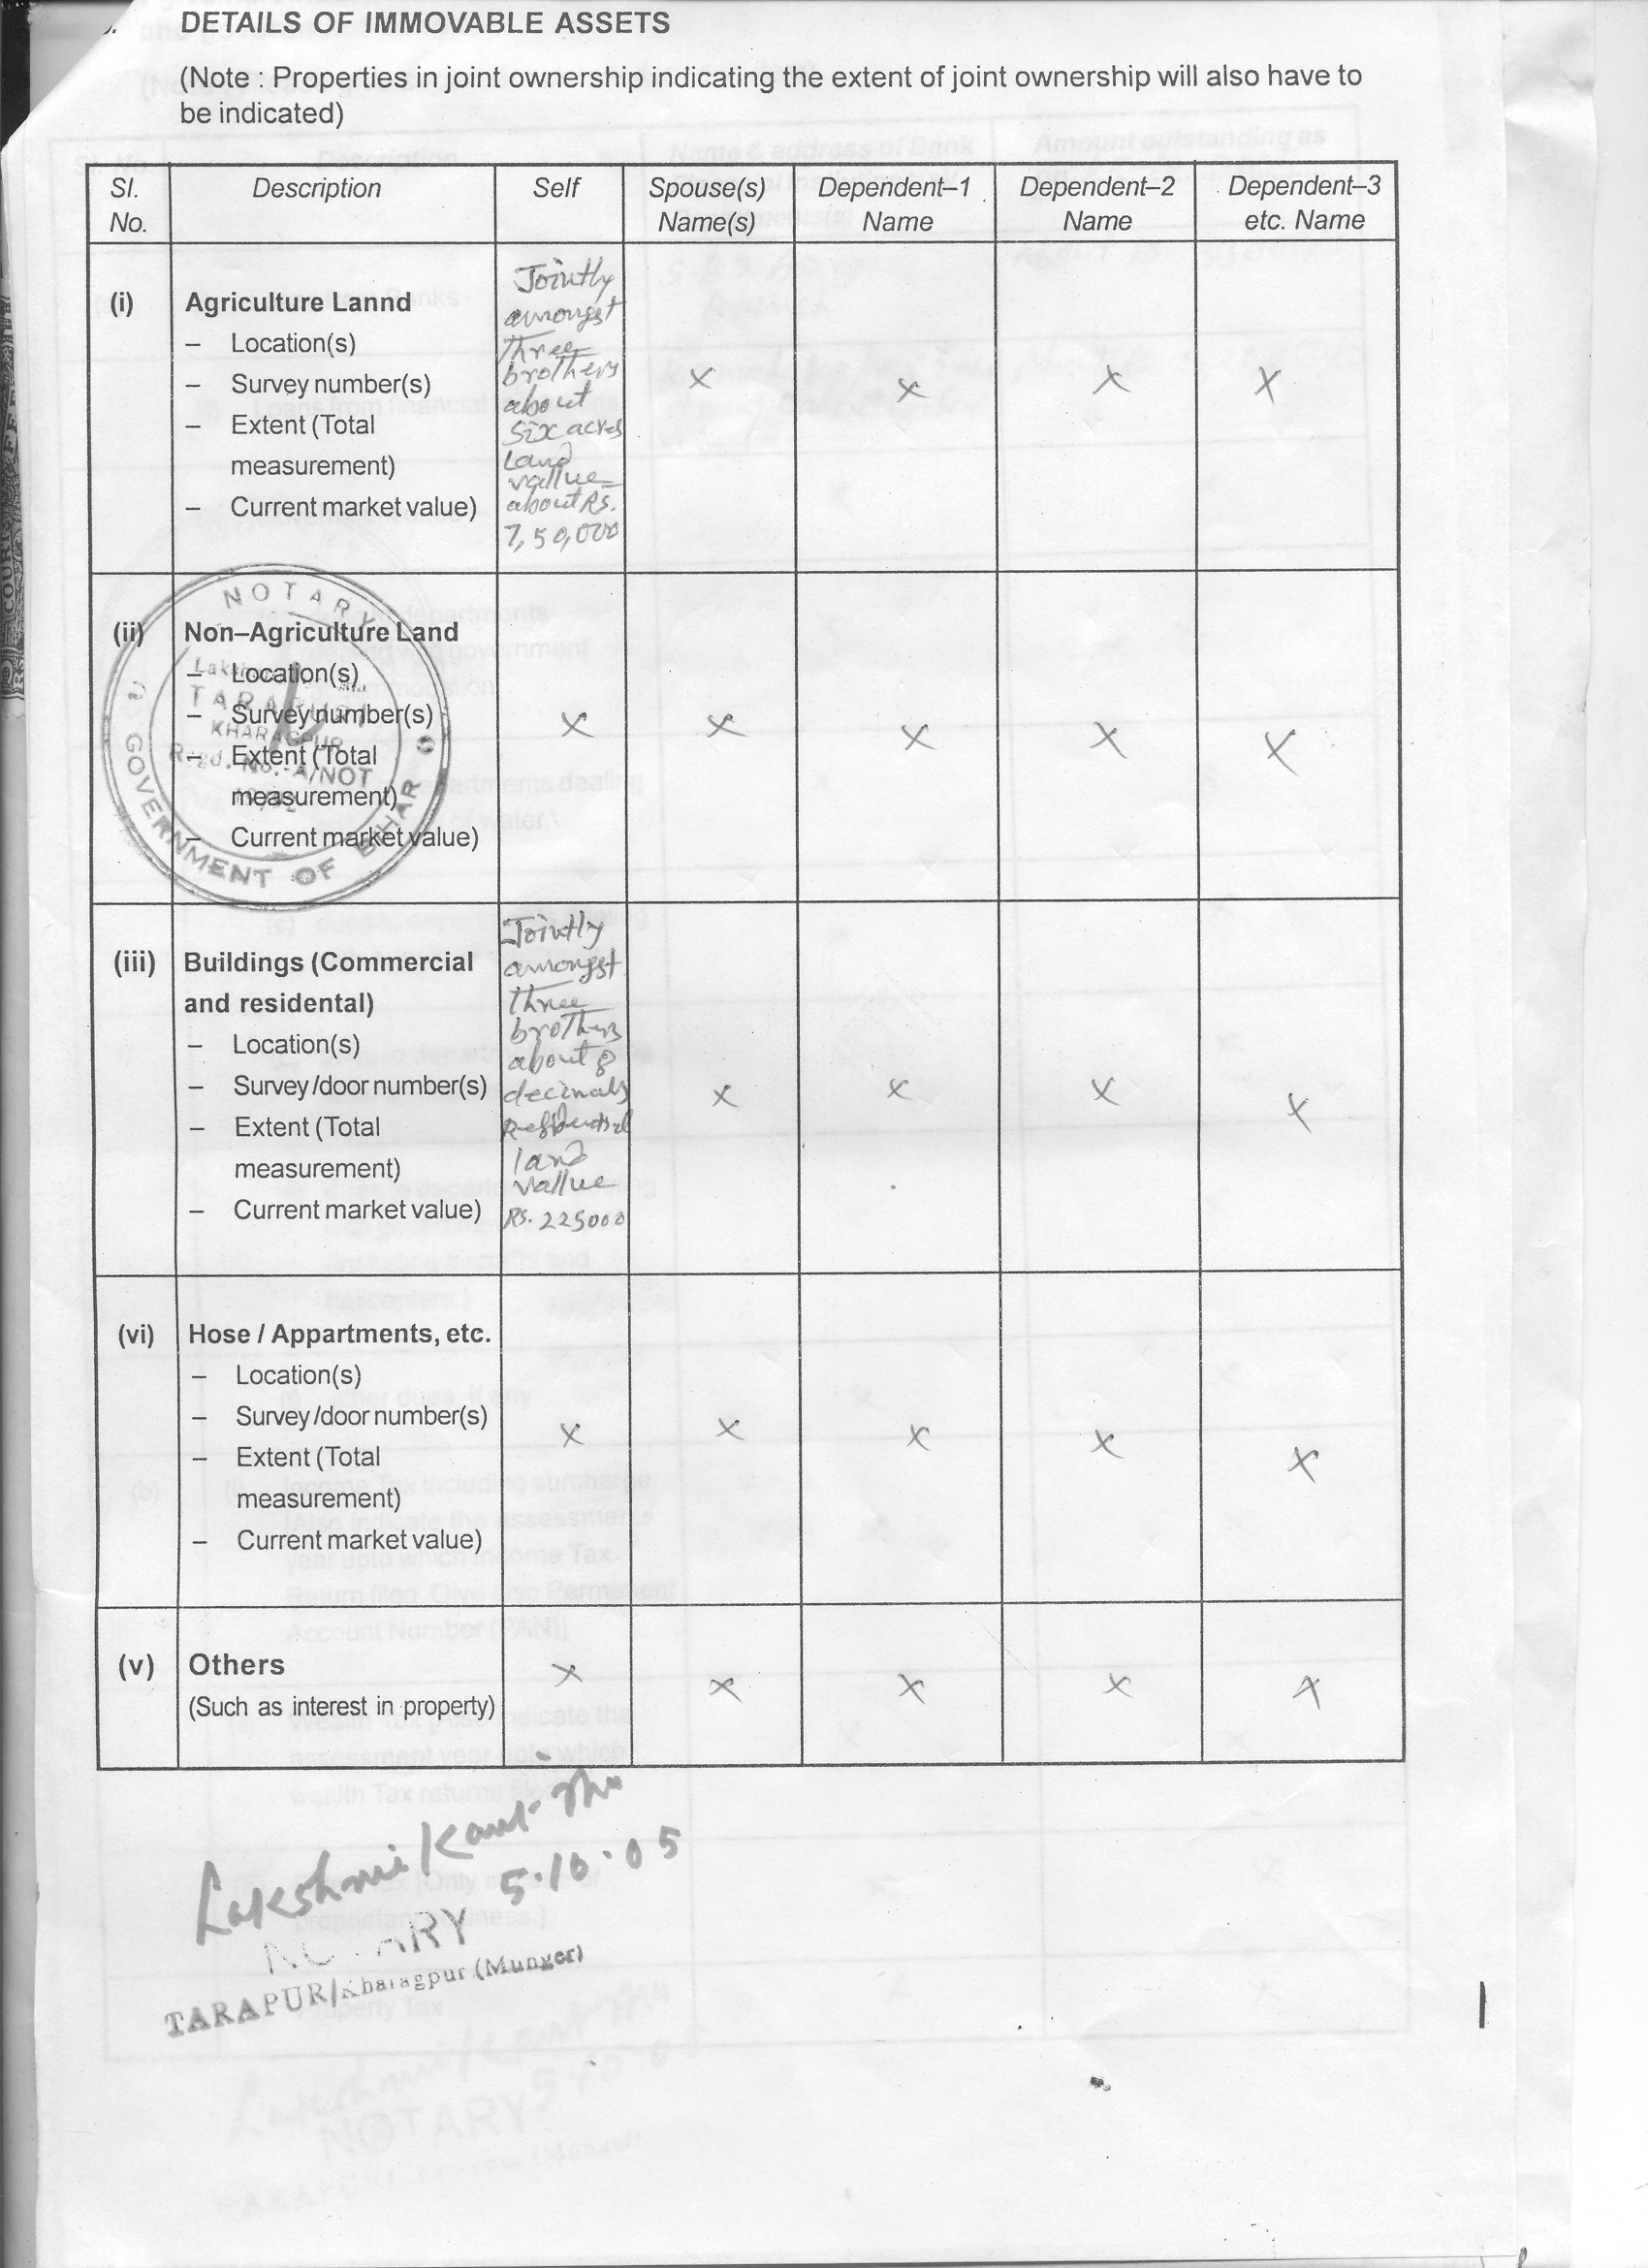 DETAILS OF IMMOVABLE ASSETS
(Note : Properties in joint ownership indicating the extent of joint ownership will also have to
be indicated)
Sl. No. Description Self Spouse(s) Name(s) Dependent–1 Name Dependent–2 Name Dependent–3 etc. Name
(i) Agriculture Lannd
– Location(s)
– Survey number(s)
– Extent (Total
measurement)
– Current market value)
Jointly
amongst
three
brothers
about
six acres
Land
vallue
about Rs.
7,50,000
X X X X
(ii) Non–Agriculture Land
– Location(s)
– Survey number(s)
– Extent (Total
measurement)
– Current market value)
X X X X X
NOTARY
TARAPUR
KHARAGPUR
Regd. No.-A/NOT
GOVERNMENT OF BIHAR
(iii) Buildings (Commercial
and residental)
– Location(s)
– Survey/door number(s)
– Extent (Total
measurement)
– Current market value)
Jointly
amongst
three
brothers
about 8
decimals
land
vallue
Rs. 225000
X X X X
(vi) Hose / Appartments, etc.
– Location(s)
– Survey/door number(s)
– Extent (Total
measurement)
– Current market value)
X X X X X
(v) Others
(Such as interest in property)
X X X X X
Lakshmi Kant
5.10.05
NOTARY
TARAPUR/Kharagpur (Munger)